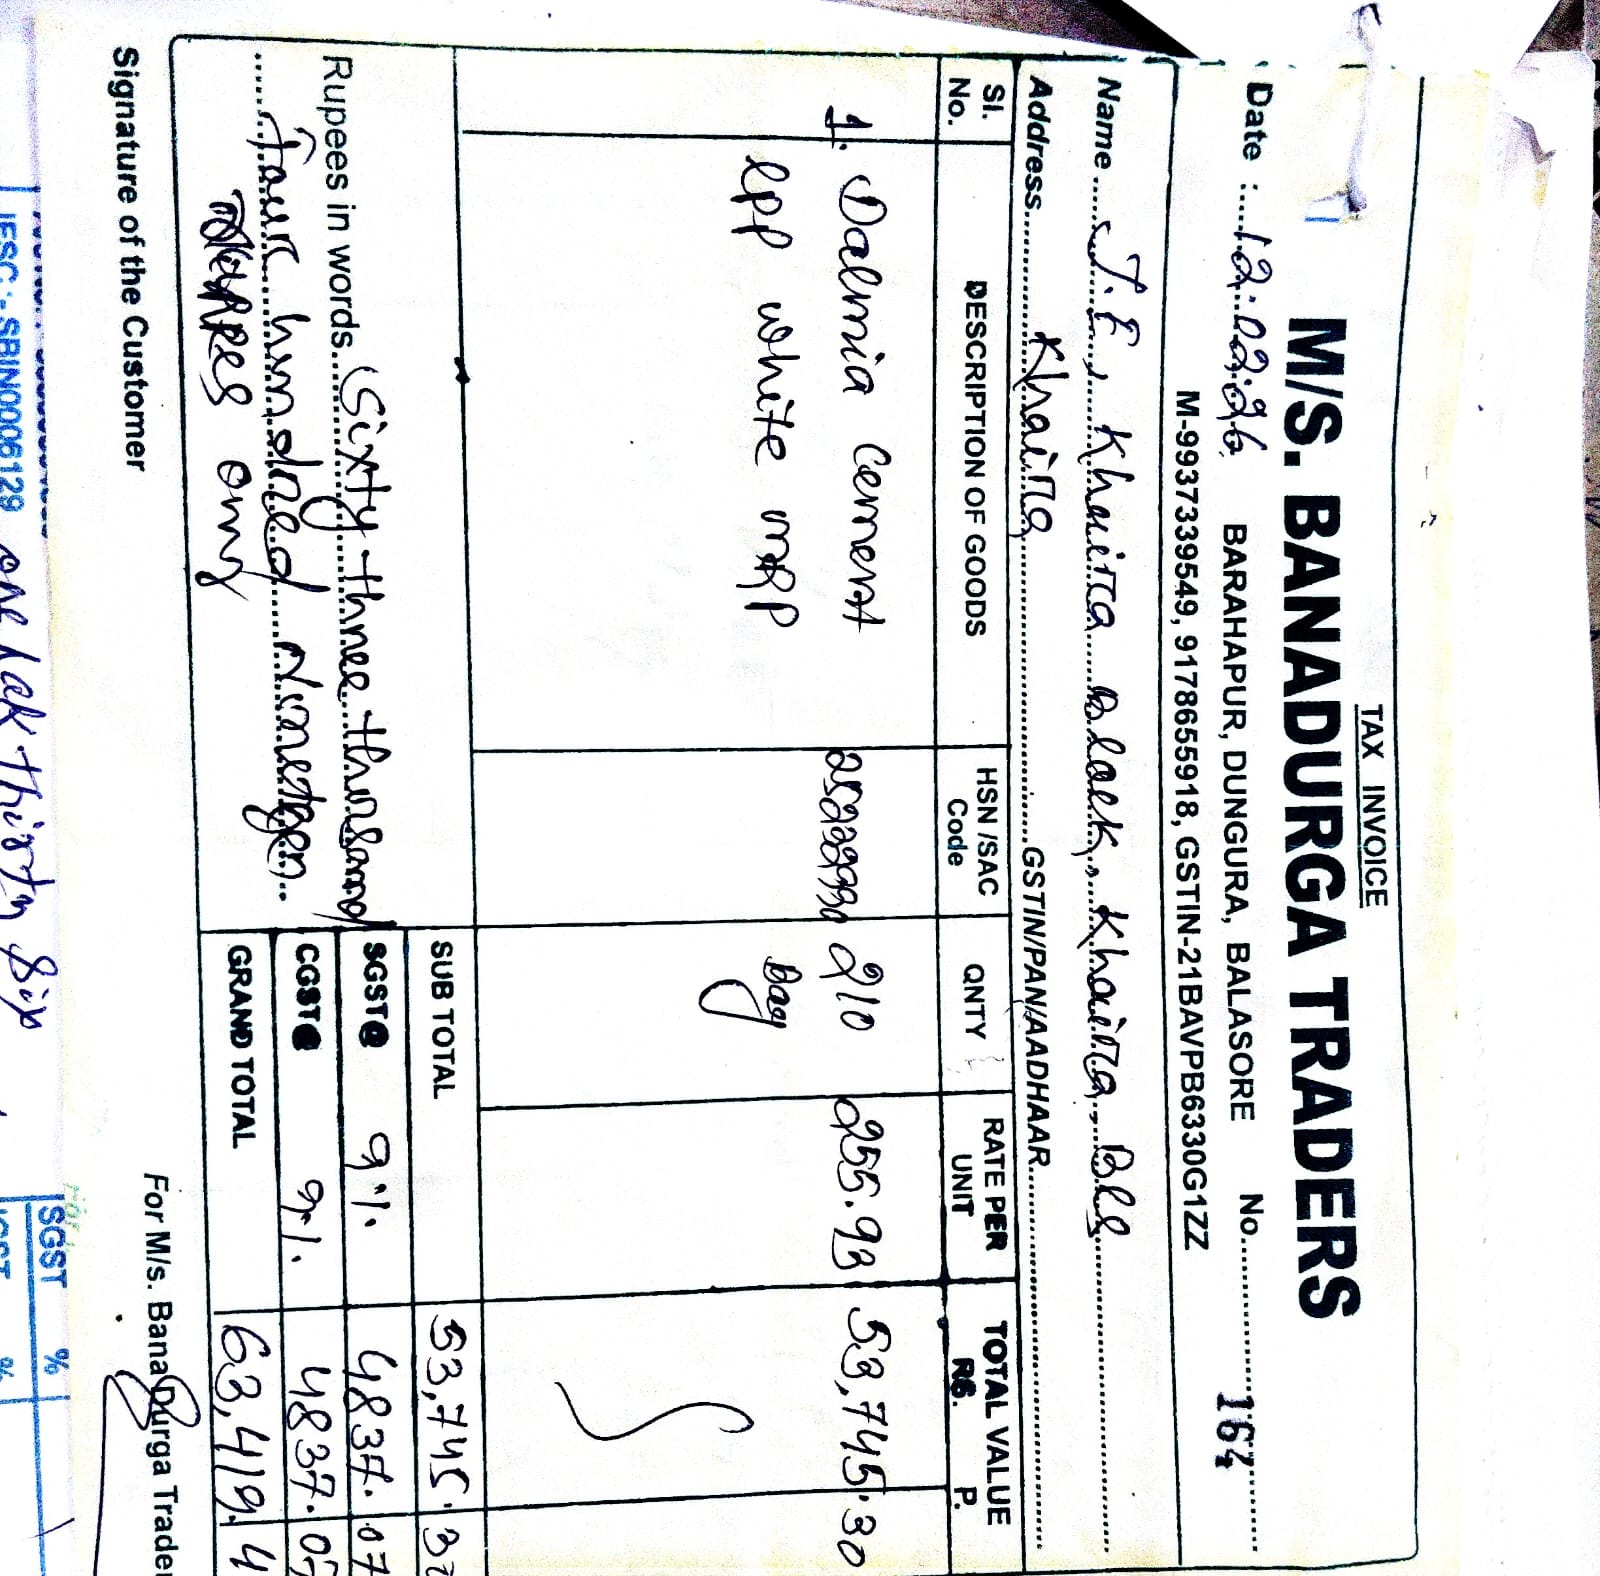 TAX INVOICE
M/S. BANADURGA TRADERS
Date : 12.02.26 BARAHAPUR, DUNGURA, BALASORE No. 164
M-9937339549, 9178655918, GSTIN-21BAVPB6330G1ZZ
Name J.E, Khaira Block, Khaira, Bls
Address Khaira GSTIN/PAN/AADHAAR
Sl. No. DESCRIPTION OF GOODS HSN /SAC Code QNTY RATE PER UNIT TOTAL VALUE RS. P.
1. Dalmia Cement 210 255.93 53,745.30
white Bag
SUB TOTAL 53,745.
Rupees in words Sixty three thousand SGST@ 9% 4837.07
four hundred Nineteen CGST@ 9% 4837.07
only GRAND TOTAL 63,419.
Signature of the Customer For M/s. Bana Durga Trader
IFSC:-SBIN0006129 one lak thirty six
SGST %
%